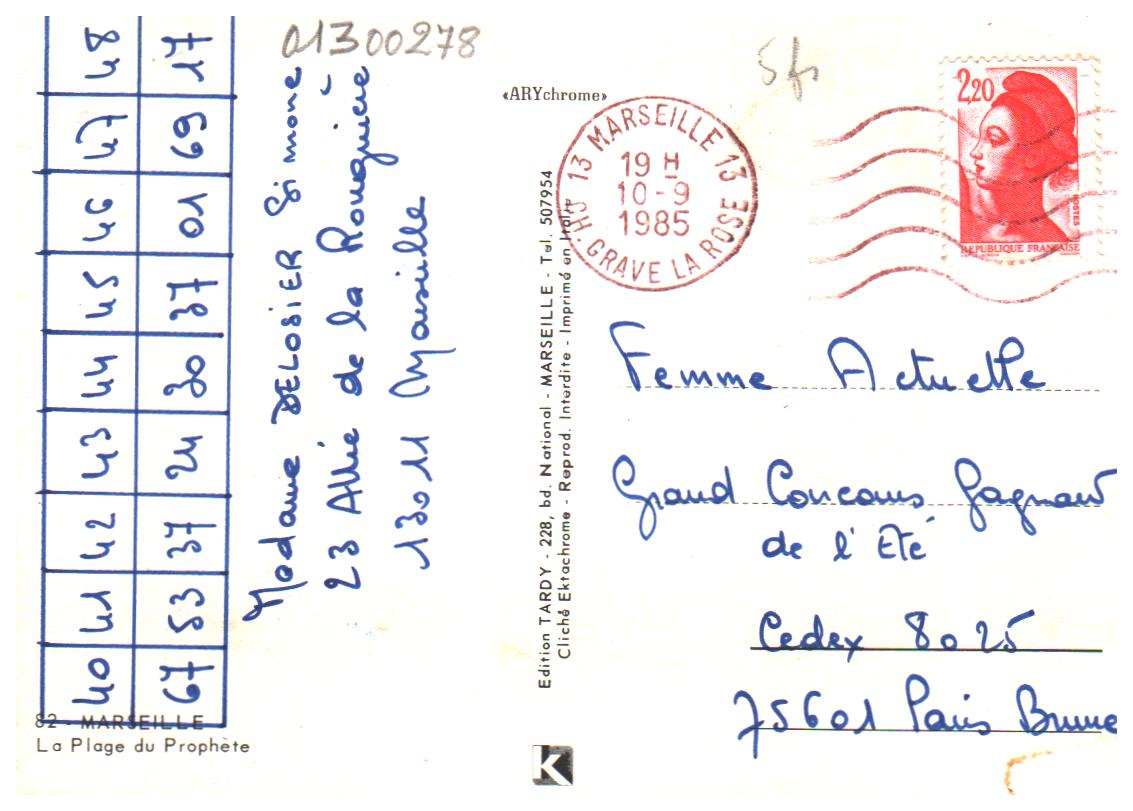 40 41 42 43 44 45 46 47 48
67 53 37 24 30 37 01 69 17
Madame DELOBIER Simone
23 Allée de la Rouguière
13011 Marseille
01300278
82 - MARSEILLE
La Plage du Prophète
«ARYchrome»
Edition TARDY - 228, bd. National - MARSEILLE - Tel. 507954
Cliché Ektachrome - Reprod. Interdite - Imprimé en Italie
K
5 fr
13 MARSEILLE 13
19 H
10-9
1985
CH. GRAVE LA ROSE
2,20
POSTES
REPUBLIQUE FRANÇAISE
Femme Actuelle
Grand Concours Gagnant
de l'Eté
Cedex 8025
75601 Paris Brune